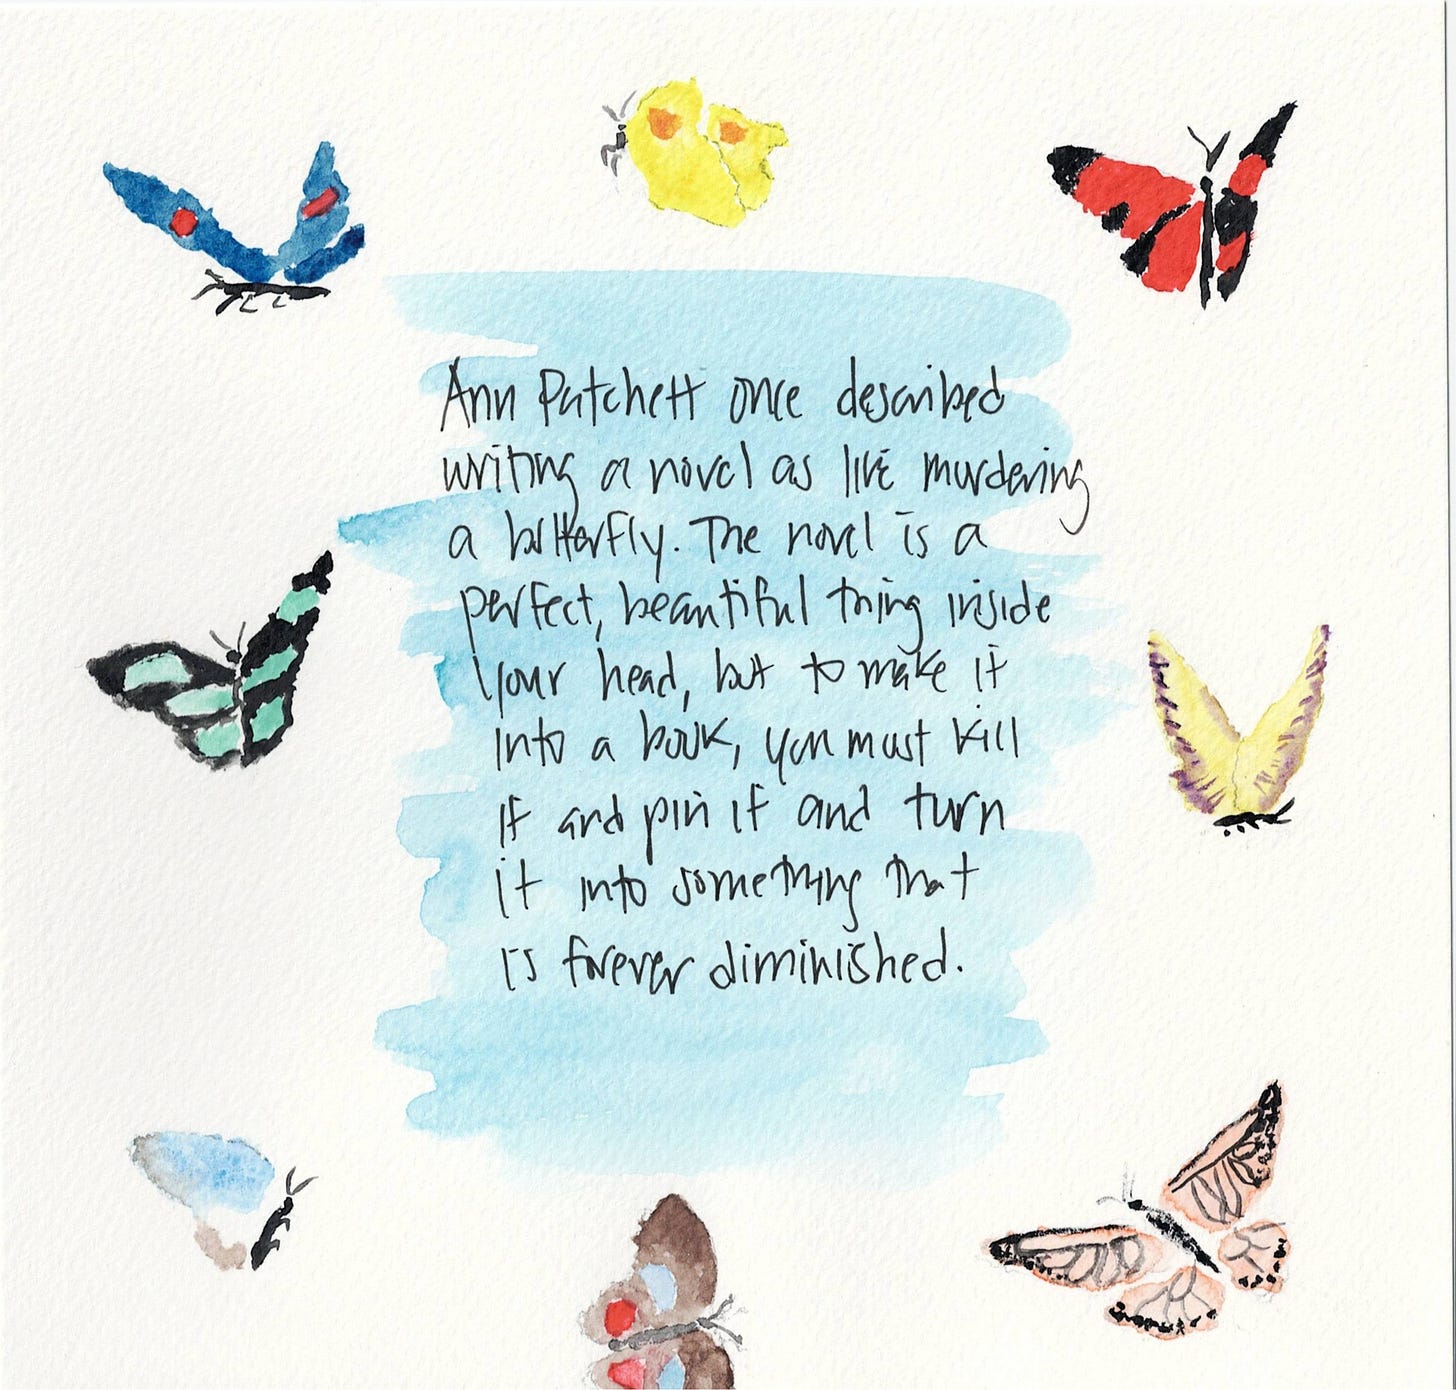 Ann Patchett once described
writing a novel as like murdering
a butterfly. The novel is a
perfect, beautiful thing inside
your head, but to make it
into a book, you must kill
it and pin it and turn
it into something that
is forever diminished.